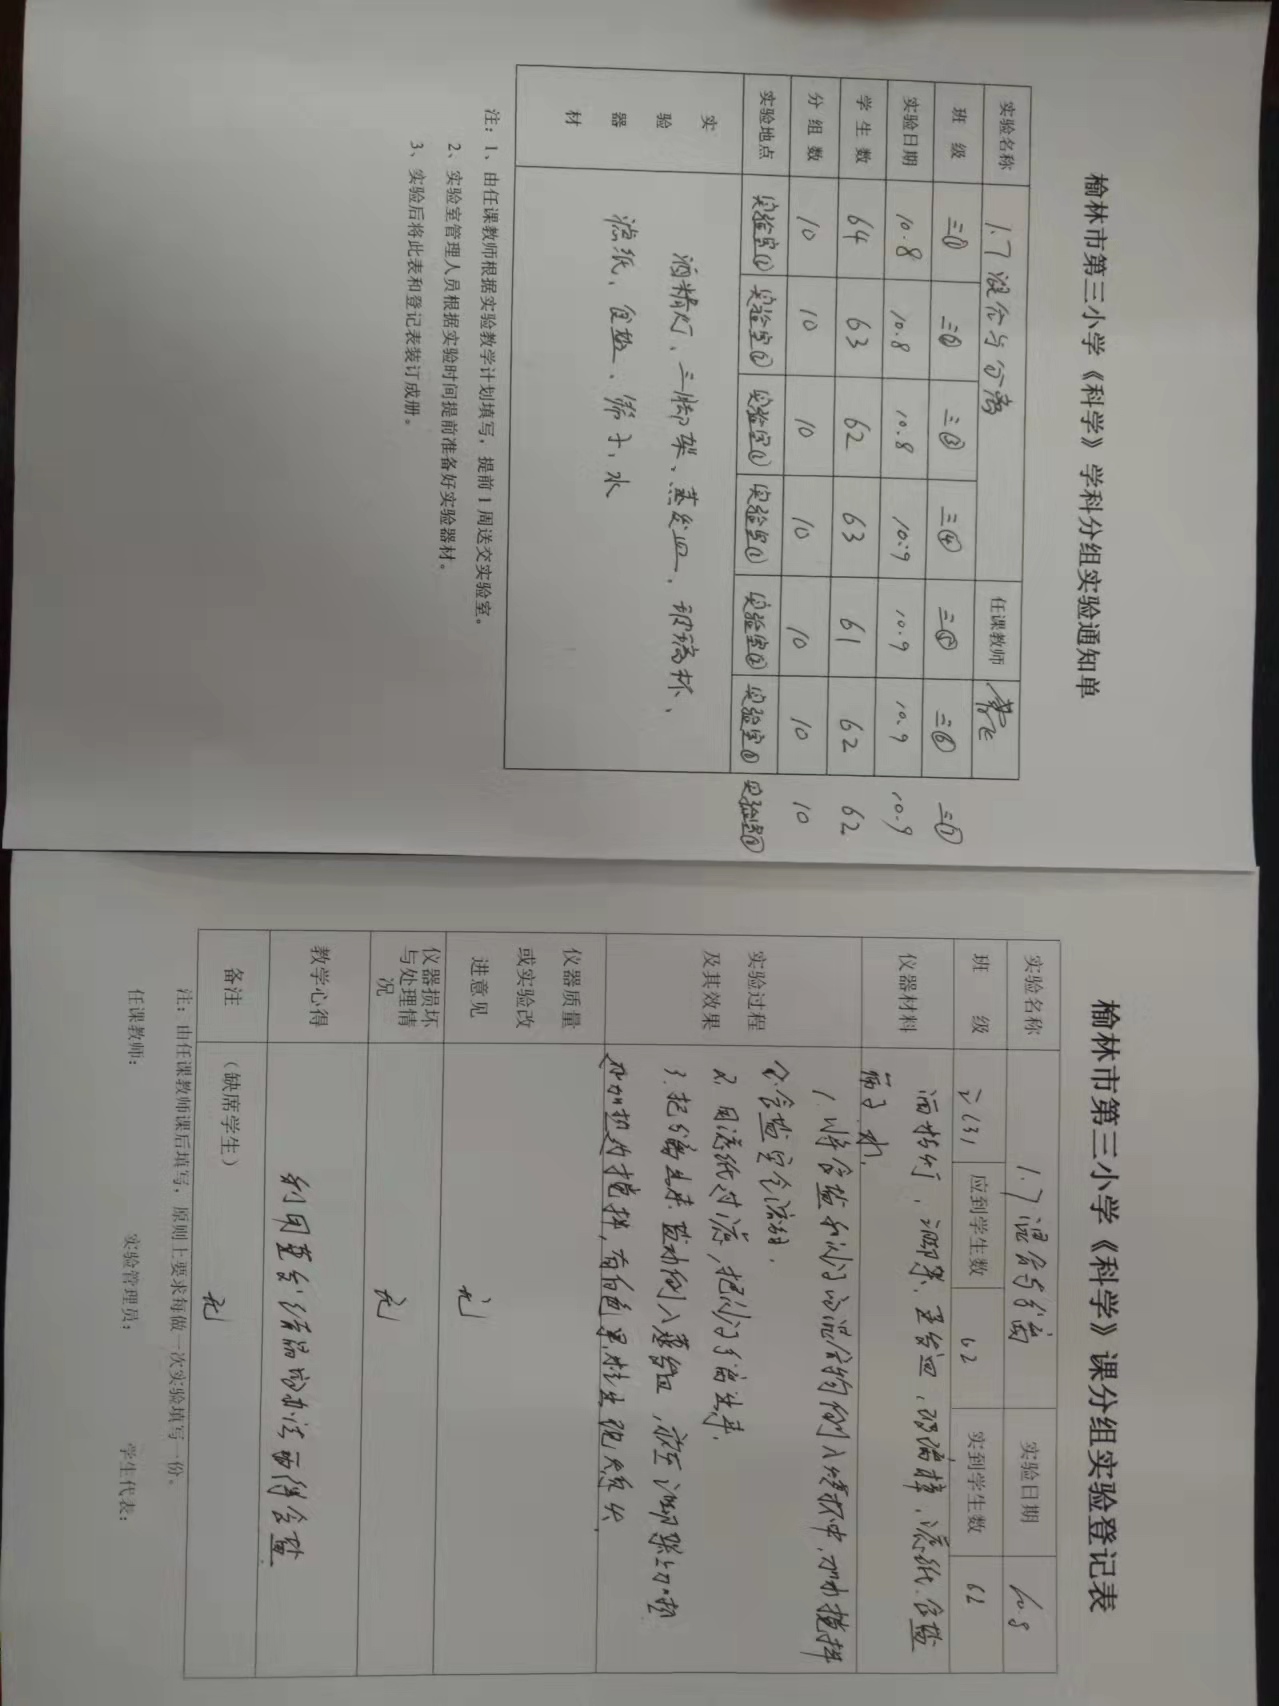 榆林市第三小学《科学》学科分组实验通知单
实验名称 1.7 混合与分离 任课教师
班 级 三① 三② 三③ 三④ 三⑤ 三⑥ 三⑦
实验日期 10.8 10.8 10.8 10.9 10.9 10.9 10.9
学生数 64 63 62 63 61 62 62
分组数 10 10 10 10 10 10 10
实验地点 实验室① 实验室① 实验室① 实验室① 实验室② 实验室② 实验室②
实验器材
酒精灯、三脚架、蒸发皿、玻璃杯、
滤纸、食盐、筛子、水
注：1、由任课教师根据实验教学计划填写，提前1周送交实验室。
2、实验室管理人员根据实验时间提前准备好实验器材。
3、实验后将此表和登记表装订成册。
榆林市第三小学《科学》课分组实验登记表
实验名称 1.7混合与分离 实验日期 10.8
班 级 三(3) 应到学生数 62 实到学生数 62
仪器材料 酒精灯、三脚架、蒸发皿、玻璃棒、滤纸、食盐
筛子、水.
实验过程及其效果
1. 将食盐和沙的混合物倒入烧杯中，加水搅拌
食盐完全溶解.
2. 用滤纸过滤，把沙子分离出来.
3. 把分离出来 倒入蒸发皿，放在三脚架上加热
加热 搅拌，有白色 出现
仪器质量或实验改进意见 无
仪器损坏与处理情况 无
教学心得 利用蒸发结晶的办法可得食盐
备注 （缺席学生） 无
注：由任课教师课后填写，原则上要求每做一次实验填写一份。
任课教师： 实验管理员： 学生代表：